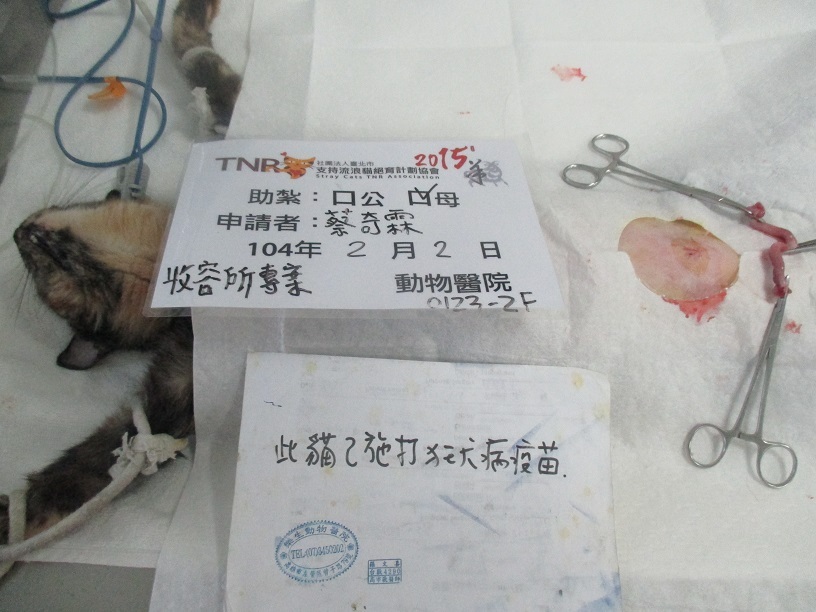 TNR 社團法人臺北市
支持流浪貓絕育計劃協會
Stray Cats TNR Association
2015'
助紮：口公 口母
申請者：蔡奇霖
104年 2 月 2 日
收容所專案 動物醫院
0123-2F
此貓已施打狂犬病疫苗.
動物醫院
TEL:(07)3450202